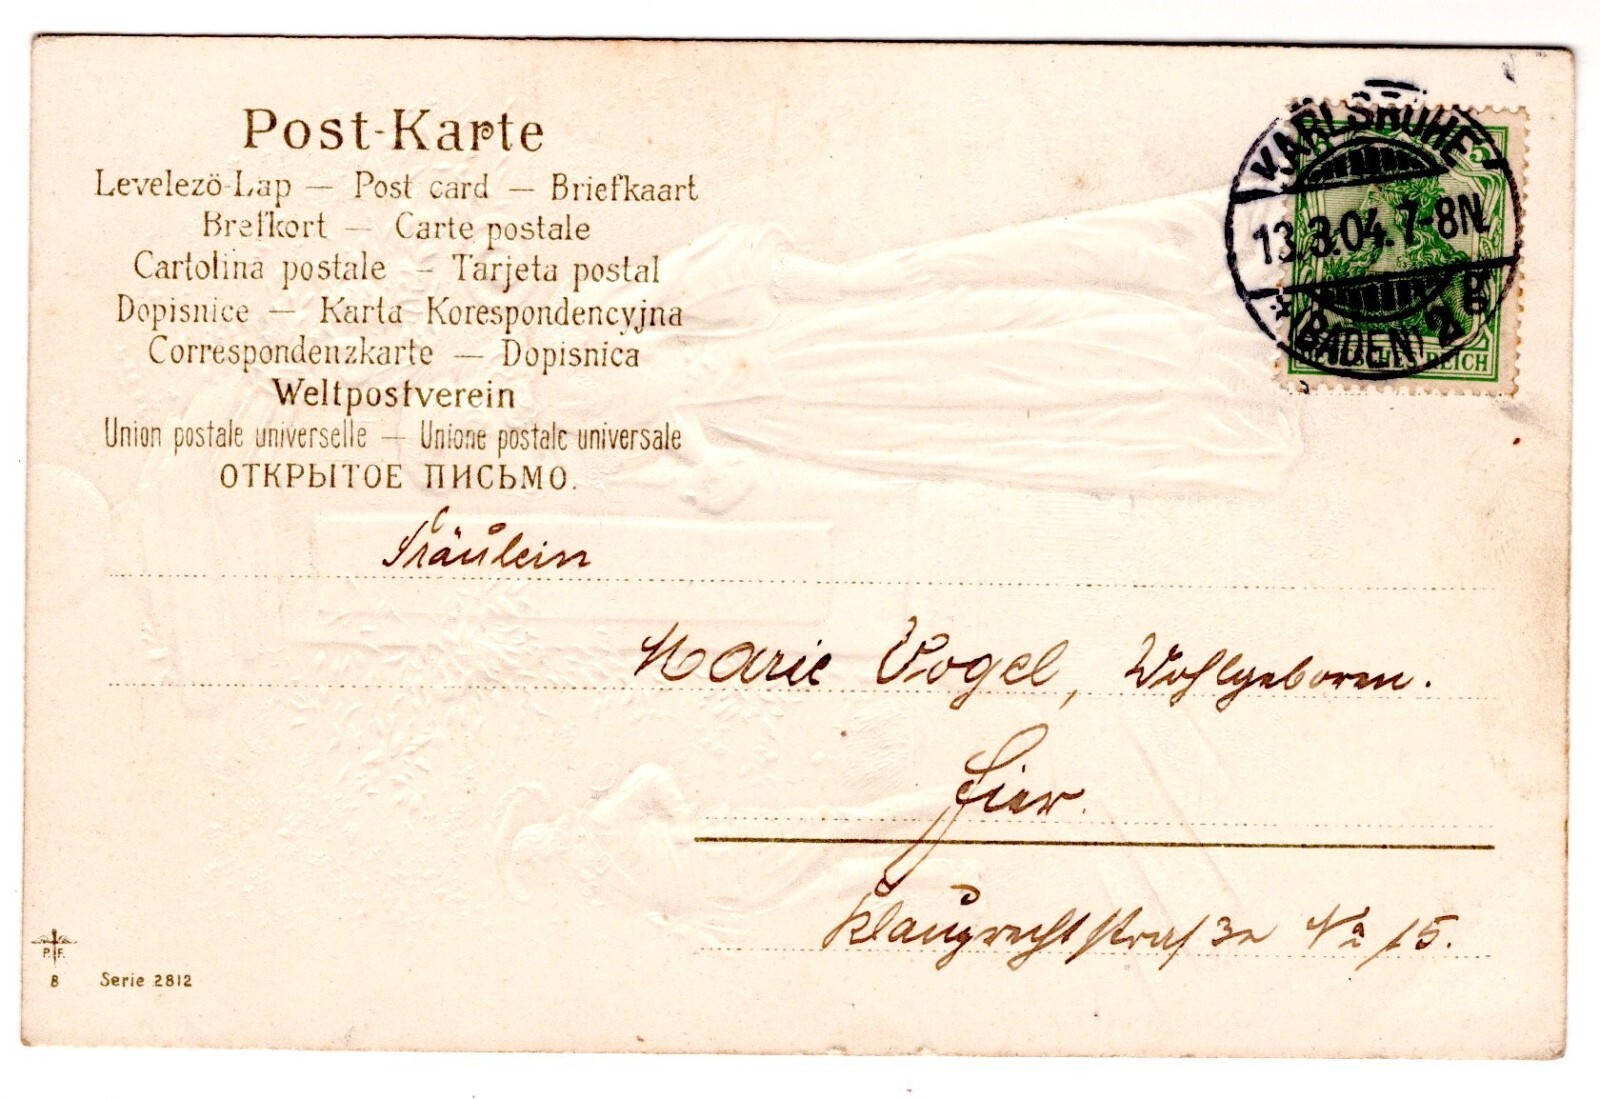 Post-Karte
Levelezö-Lap — Post card — Briefkaart
Brefkort — Carte postale
Cartolina postale — Tarjeta postal
Dopisnice — Karta Korespondencyjna
Correspondenzkarte — Dopisnica
Weltpostverein
Union postale universelle — Unione postale universale
ОТКРЫТОЕ ПИСЬМО.
KARLSRUHE
13.3.04. 7-8N.
(BADEN) 2 g
5
DEUTSCHES REICH
Fräulein
Marie Vogel, Wohlgeboren.
Hier.
Klauprechtstraße No 15.
P. F.
8 Serie 2812